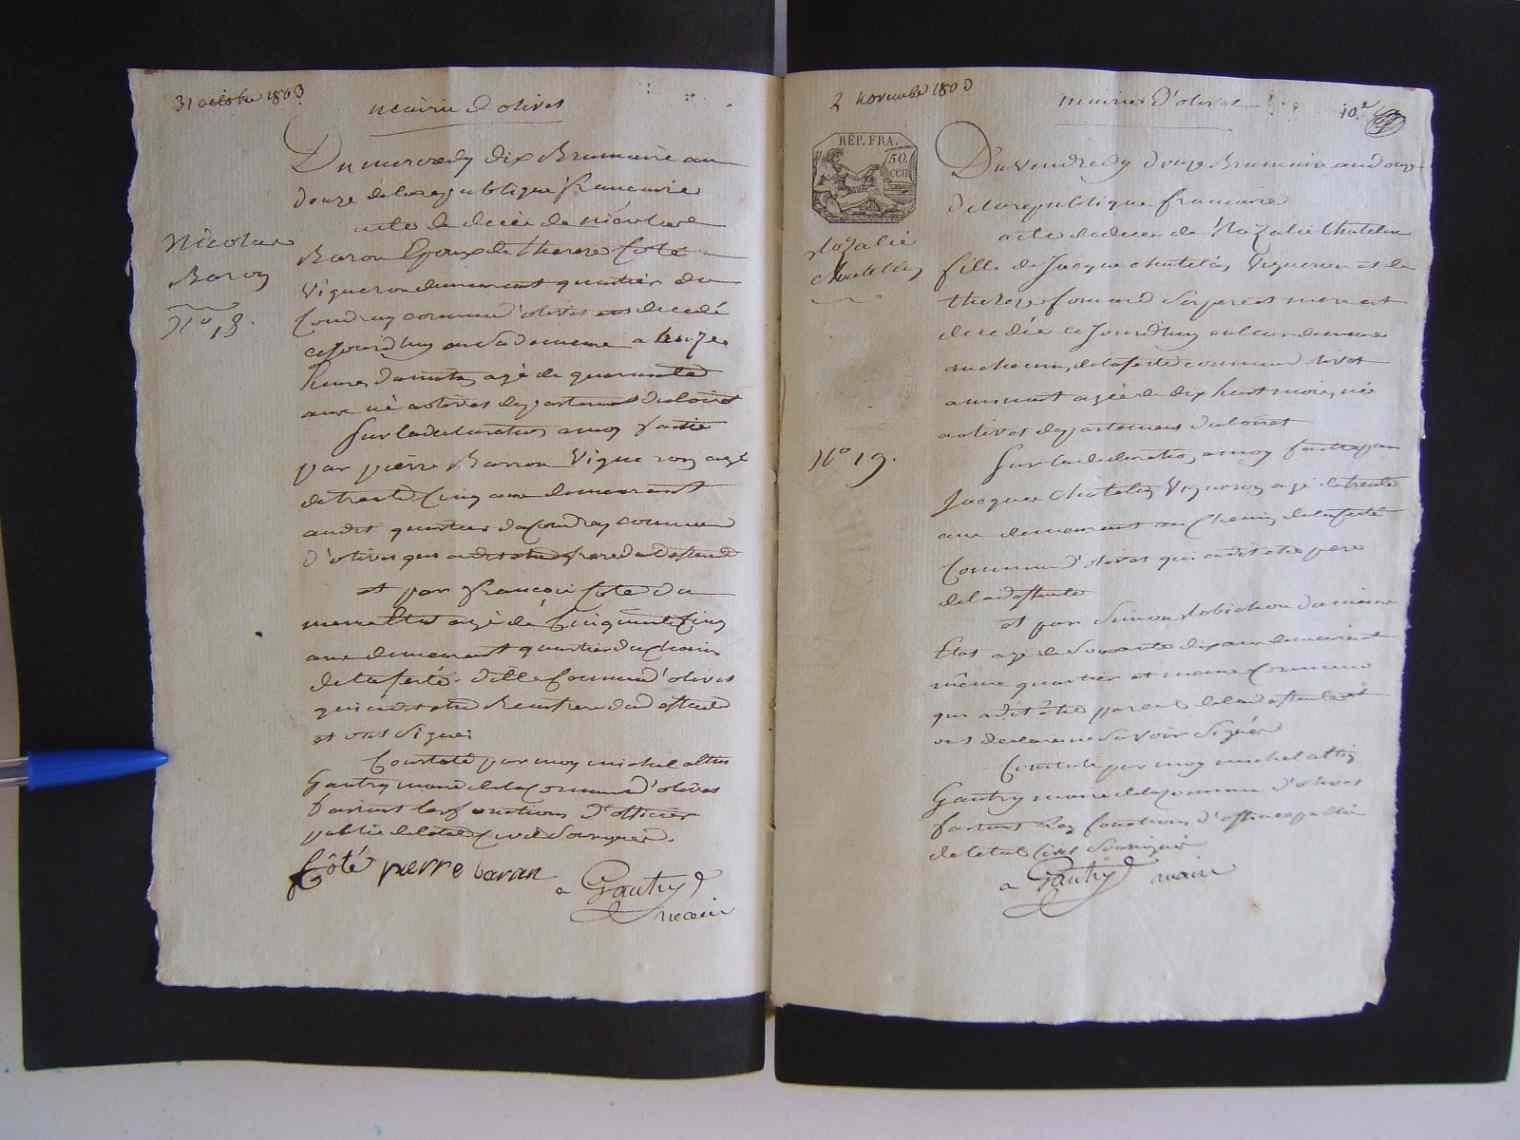 31 octobre 1803
mairie d'olivet
Du mercredy dix Brumaire an
douze de la republique francaise
acte de deces de nicolas
Baron Epoux de therese Coté
Vigneron demeurant quartier du
Coudray commune d'olivet decedé
cejourdhuy en sa demeure a onze
heures du matin, agé de quarante
ans né a olivet departement du loiret
Sur la declaration a moy faitte
par pierre Barron Vigneron agé
de trente Cinq ans demeurant
audit quartier du Coudray commune
d'olivet qui a dit etre frere du deffunt
et par francois Coté du
meme etat agé de Cinquante Cinq
ans demeurant quartier du chemin
de la ferté ditte Commune d'olivet
qui a dit etre beaufrere du deffunt
et ont Signé
Constaté par moy michel altin
Gautry maire de la Commune d'olivet
faisant les fonctions d'officier
public de letat Civil Soussigné.
Côté pierre baron
a Gautry
maire
Nicolas
Baron
No 18.
2 novembre 1803
mairie d'olivet
10.e
RÉP. FRA.
50
CEN
Du Vendredy douze Brumaire an douze
de la republique francaise
acte de deces de Rozalie Chatelin
fille de Jacque chatelin Vigneron et de
therese fouard Ses pere et mere
decedée ce Jourdhuy en leur demeure
au chemin de la ferté commune d'olivet
agée de dix huit mois, née
a olivet departement du loiret
Sur la declaration a moy faitte par
Jacques Chatelin Vigneron agé de trente
ans demeurant au Chemin de la ferté
Commune d'olivet qui a dit etre pere
de la deffunte
et par Simon Robichon du meme
Etat agé de Soixante dix ans demeurant
même quartier et meme Commune
qui a dit être parent de la deffunte et
ont declaré ne Savoir Signer
Constaté par moy michel altin
Gautry maire de la Commune d'olivet
faisant les fonctions d'officier public
de letat Civil Soussigné
a Gautry maire
Rozalie
Chatelin
No 19.